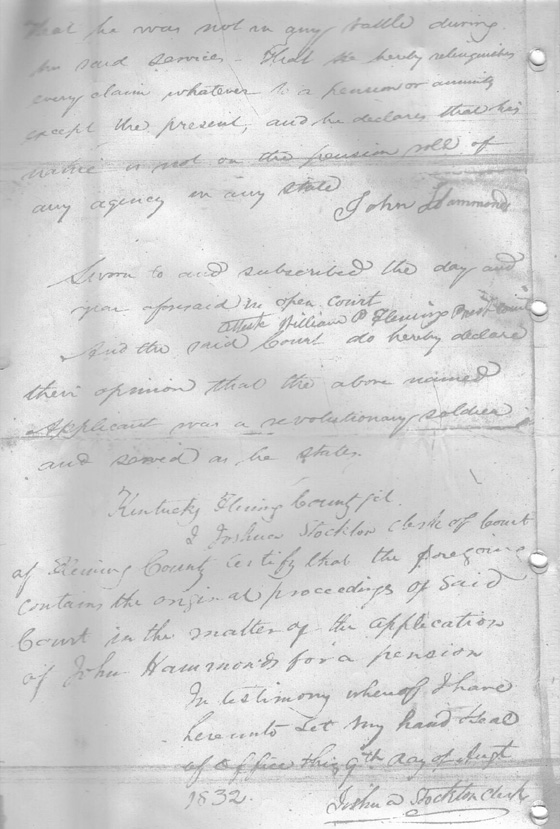 that he was not in any battle during
his said services - That he hereby relinquishes
every claim whatever to a pension or annuity
except the present, and he declares that his
name is not on the pension roll of
any agency in any state
John Hammonds
Sworn to and subscribed the day and
year aforesaid in open court
Attest William P Fleming
And the said Court do hereby declare
their opinion that the above named
Applicant was a revolutionary soldier
and served as he states.
Kentucky Fleming County
I Joshua Stockton clerk of Court
of Fleming County Certify that the foregoing
contains the original proceedings of said
Court in the matter of the application
of John Hammonds for a pension
In testimony whereof I have
hereunto set my hand & seal
of office this 9th day of Augt
1832.
Joshua Stockton clerk